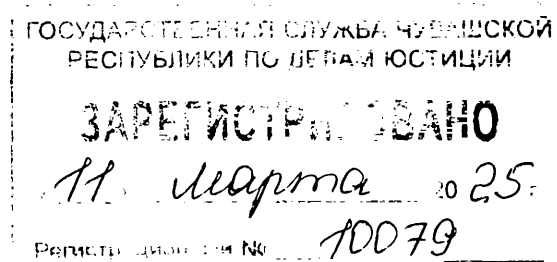 ГОСУДАРСТВЕННАЯ СЛУЖБА ЧУВАШСКОЙ
РЕСПУБЛИКИ ПО ДЕЛАМ ЮСТИЦИИ
ЗАРЕГИСТРИРОВАНО
11 марта 2025
Регистрационный № 10079